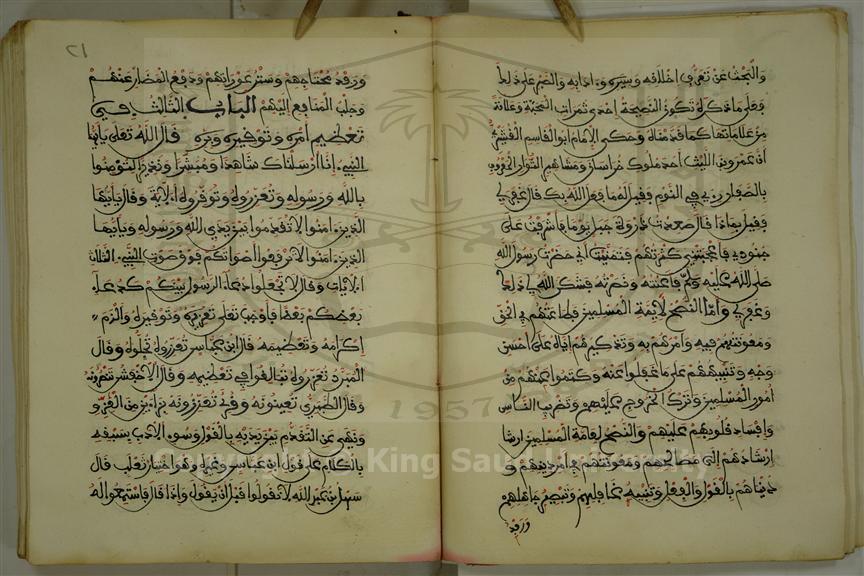 والبحث عن تعرف اخلافه وسيره وءادابه والصبر على ذلك
فعلى ما ذكره تكون النصيحة احدى ثمرات المحبة وعلامة
من علاماتها كما قدمناه وحكى الامام ابو القاسم القشيري
ان عمرو بن الليث احد ملوك خراسان ومشاهير الثوار المعروف
بالصفار ريي في النوم فقيل له ما فعل الله بك قال غفر لي
فقيل بماذا قال صعدت ذروة جبل يوما فاشرفت على
جنودي فاعجبتني كثرتهم فتمنيت اني حضرت رسول الله
صلى الله عليه وسلم فاعنته ونصرته فشكر الله لي ذلك
وغفر لي واما النصح لايمة المسلمين فطاعتهم في الحق
ومعونتهم فيه وامرهم به وتذكيرهم اياه على احسن
وجه وتنبيههم على ما غفلوا عنه وكتم عنهم من
امور المسلمين وترك الخروج عليهم وتضريب الناس
وافساد قلوبهم عليهم والنصح لعامة المسلمين ارشا
ارشادهم الى مصالحهم ومعونتهم في امر دينهم و
دنياهم بالقول والفعل وتنبيه غافلهم وتبصير جاهلهم
ورفد
٢١
ورفد محتاجهم وستر عوراتهم ودفع المضار عنهم
وجلب المنافع اليهم الباب الثالث في
تعظيم امره وتوقيره وبره قال الله تعلى يايها
النبيء انا ارسلناك شاهدا ومبشرا ونذيرا لتومنوا
بالله ورسوله وتعزروه وتوقروه الاية وقال يايها
الذين ءامنوا لا تقدموا بين يدي الله ورسوله ويايها
الذين ءامنوا لا ترفعوا اصواتكم فوق صوت النبيء الثلاث
الايات وقال لا تجعلوا دعاء الرسول بينكم كدعاء
بعضكم بعضا فاوجب تعلى تعزيره وتوقيره والزم
اكرامه وتعظيمه قال ابن عباس تعزروه تجلوه وقال
المبرد تعزروه تبالغوا في تعظيمه وقال الاخفش تنصرونه
وقال الطبري تعينونه وقرئ تعززوه بزاءين من العز و
ونهى عن التقدم بين يديه بالقول وسوء الادب بسبقه
بالكلام على قول ابن عباس وغيره وهو اختيار ثعلب قال
سهل بن عبد الله لا تقولوا قبل ان يقول واذا قال فاستمعوا له
Copyright © King Saud University
1957